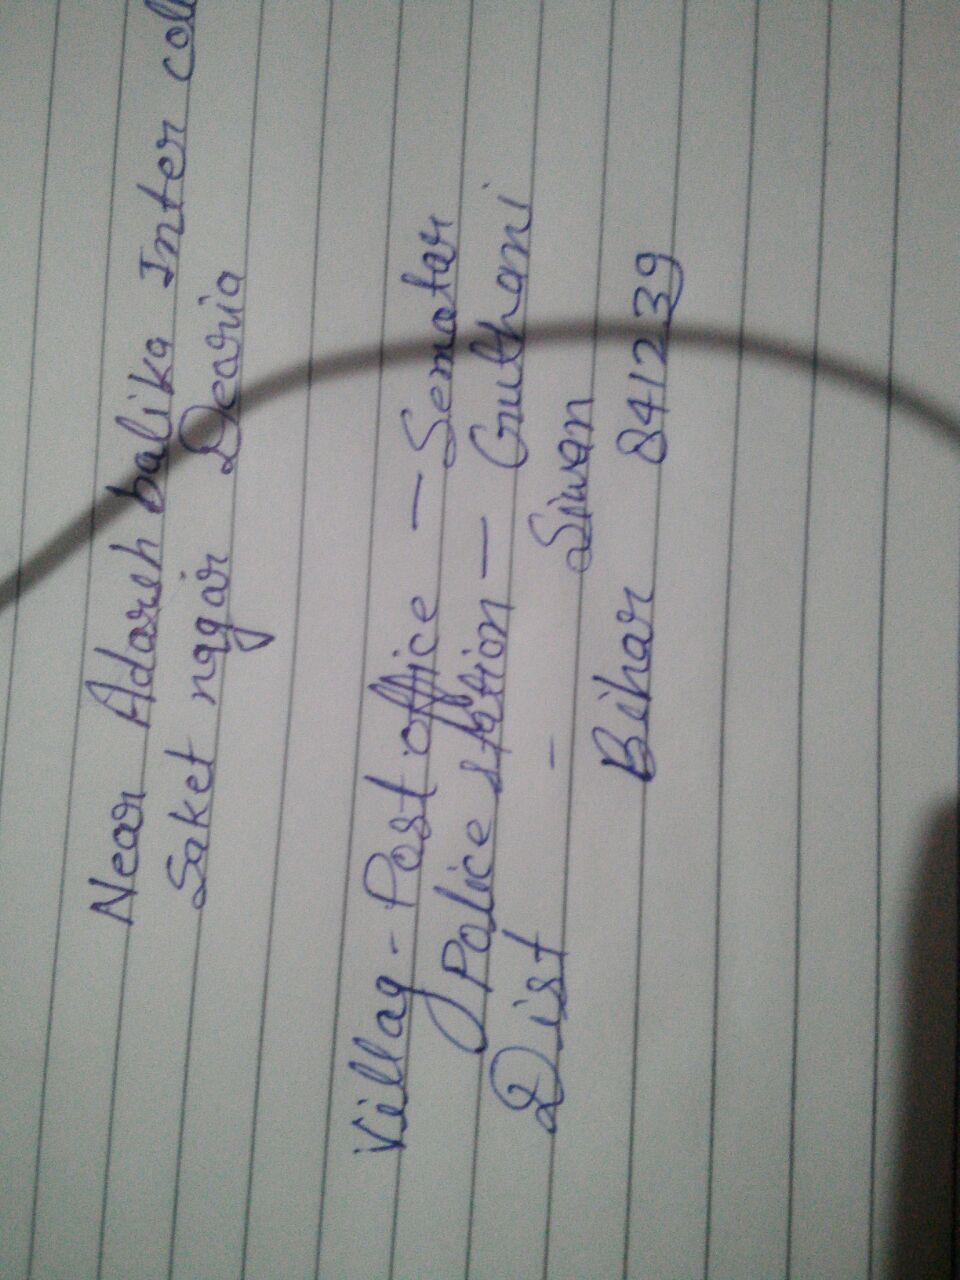 Near Adarsh balika Inter
Saket nagar Dearia
Villag - Post office - Sematar
Police station - Guthani
Dist - Siwan
Bihar 841239